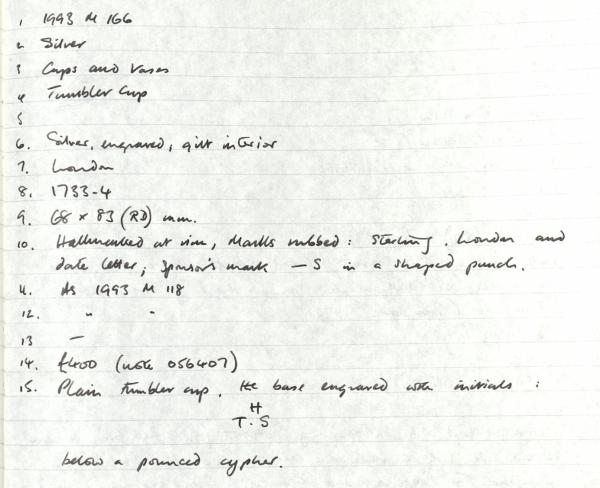 1 1993 M 166
2 Silver
3 Cups and Vases
4 Tumbler Cup
5
6. Silver, engraved, gilt interior
7. London
8. 1733-4
9. 68 x 83 (RD) mm.
10. Hallmarked at rim, Marks rubbed: Sterling, London and
date letter; Sponsor's mark — S in a shaped punch.
11. As 1993 M 118
12. " "
13 —
14. £400 (note 056407)
15. Plain tumbler cup, the base engraved with initials :
H
T. S
below a pounced cypher.